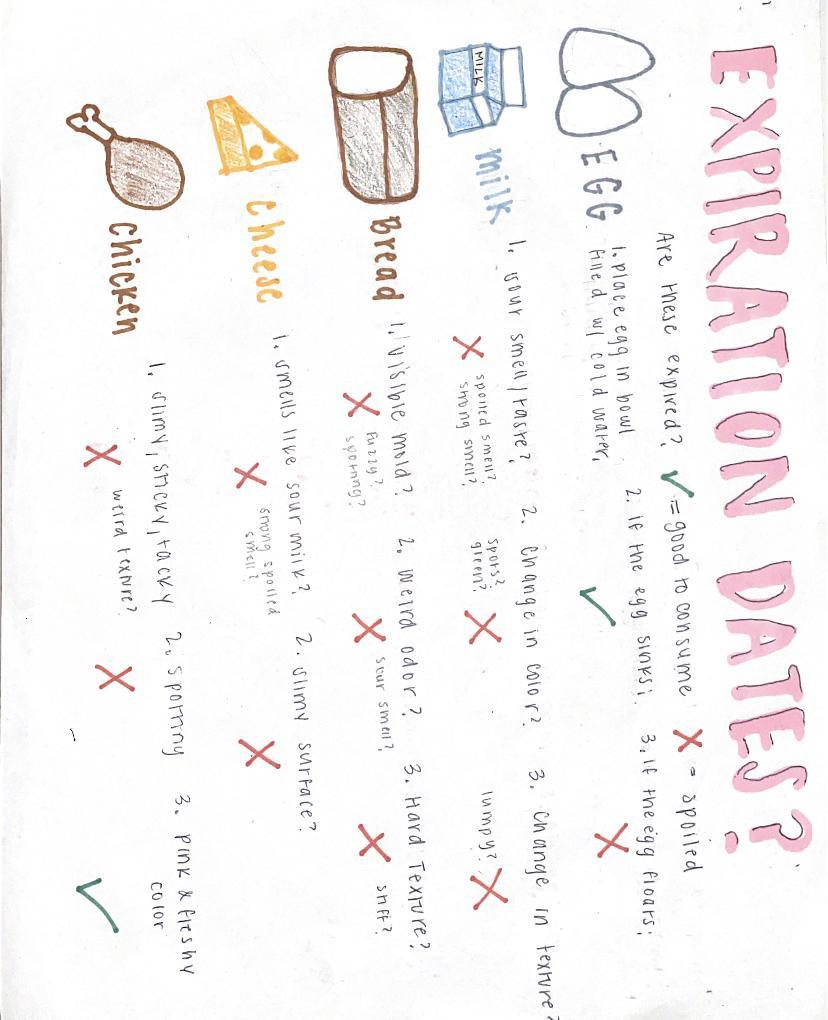 EXPIRATION DATES?
Are these expired? ✓ = good to consume X = spoiled
EGG
1. place egg in bowl
filled w/ cold water,
2. if the egg sinks:
3. if the egg floats:
MILK
milk
1. sour smell/taste?
spoiled smell?
strong smell?
2. Change in color?
spots?
green?
3. Change in texture?
lumpy?
Bread
1. visible mold?
fuzzy?
spotting?
2. weird odor?
sour smell?
3. Hard Texture?
stiff?
Cheese
1. smells like sour milk?
strong spoiled
smell?
2. slimy surface?
Chicken
1. slimy, sticky, tacky
weird texture?
2. spotting
3. pink & fleshy
color